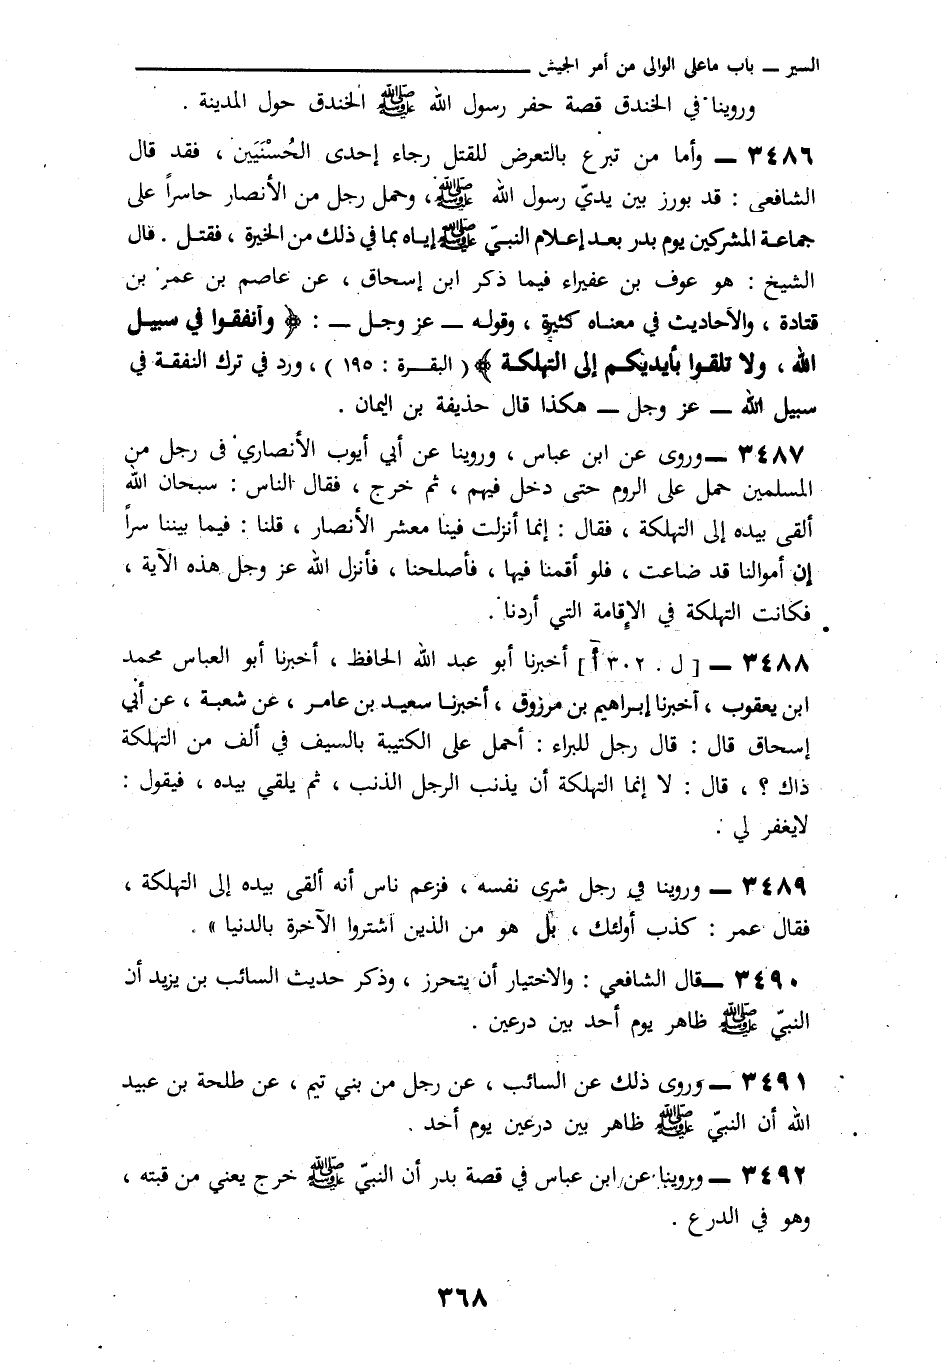 السير ــ باب ماعلى الوالى من أمر الجيش
وروينا في الخندق قصة حفر رسول الله ﷺ الخندق حول المدينة .
٣٤٨٦ ــ وأما من تبرع بالتعرض للقتل رجاء إحدى الحُسْنَيَين ، فقد قال
الشافعى : قد بورز بين يديّ رسول الله ﷺ، وحمل رجل من الأنصار حاسراً على
جماعة المشركين يوم بدر بعد إعلام النبيّ ﷺ إياه بما في ذلك من الخيرة ، فقتل . قال
الشيخ : هو عوف بن عفيراء فيما ذكر ابن إسحاق ، عن عاصم بن عمر بن
قتادة ، والآحاديث في معناه كثيرة ، وقوله ــ عز وجل ــ : ﴿ وأنفقوا في سبيل
الله ، ولا تلقوا بأيديكم إلى التهلكة ﴾ ( البقرة : ١٩٥ ) ، ورد في ترك النفقة في
سبيل الله ــ عز وجل ــ هكذا قال حذيفة بن اليمان .
٣٤٨٧ ــ وروى عن ابن عباس ، وروينا عن أبي أيوب الأنصاري فى رجل من
المسلمين حمل على الروم حتى دخل فيهم ، ثم خرج ، فقال الناس : سبحان الله
ألقى بيده إلى التهلكة ، فقال : إنما أنزلت فينا معشر الأنصار ، قلنا : فيما بيننا سراً
إن أموالنا قد ضاعت ، فلو أقمنا فيها ، فأصلحنا ، فأنزل الله عز وجل هذه الآية ،
فكانت التهلكة في الإقامة التي أردنا .
٣٤٨٨ ــ [ ل . ٣٠٢ أ ] أخبرنا أبو عبد الله الحافظ ، أخبرنا أبو العباس محمد
ابن يعقوب ، أخبرنا إبراهيم بن مرزوق ، أخبرنا سعيد بن عامر ، عن شعبة ، عن أبي
إسحاق قال : قال رجل للبراء : أحمل على الكتيبة بالسيف في ألف من التهلكة
ذاك ؟ ، قال : لا إنما التهلكة أن يذنب الرجل الذنب ، ثم يلقي بيده ، فيقول :
لايغفر لي .
٣٤٨٩ ــ وروينا في رجل شرى نفسه ، فزعم ناس أنه ألقى بيده إلى التهلكة ،
فقال عمر : كذب أولئك ، بل هو من الذين اشتروا الآخرة بالدنيا » .
٣٤٩٠ ــ قال الشافعي : والاختيار أن يتحرز ، وذكر حديث السائب بن يزيد أن
النبيّ ﷺ ظاهر يوم أحد بين درعين .
٣٤٩١ ــ وروى ذلك عن السائب ، عن رجل من بني تيم ، عن طلحة بن عبيد
الله أن النبيّ ﷺ ظاهر بين درعين يوم أحد .
٣٤٩٢ ــ وروينا عن ابن عباس في قصة بدر أن النبيّ ﷺ خرج يعني من قبته ،
وهو في الدرع .
٣٦٨